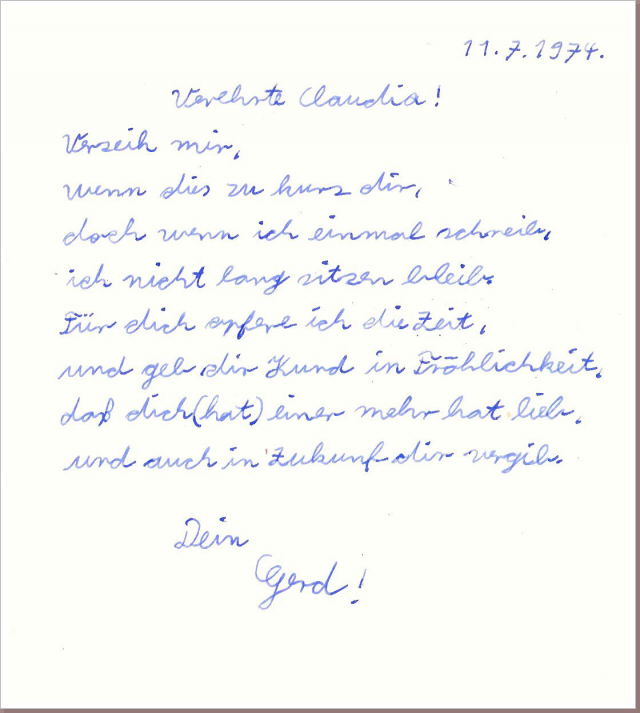 11.7.1974.
Verehrte Claudia!
Verzeih mir,
wenn dies zu kurz dir,
doch wenn ich einmal schreib,
ich nicht lang sitzen bleib.
Für dich opfere ich die Zeit,
und geb dir Kund in Fröhlichkeit,
daß dich (hat) einer mehr hat lieb,
und auch in Zukunf dir vergib.
Dein
Gerd!